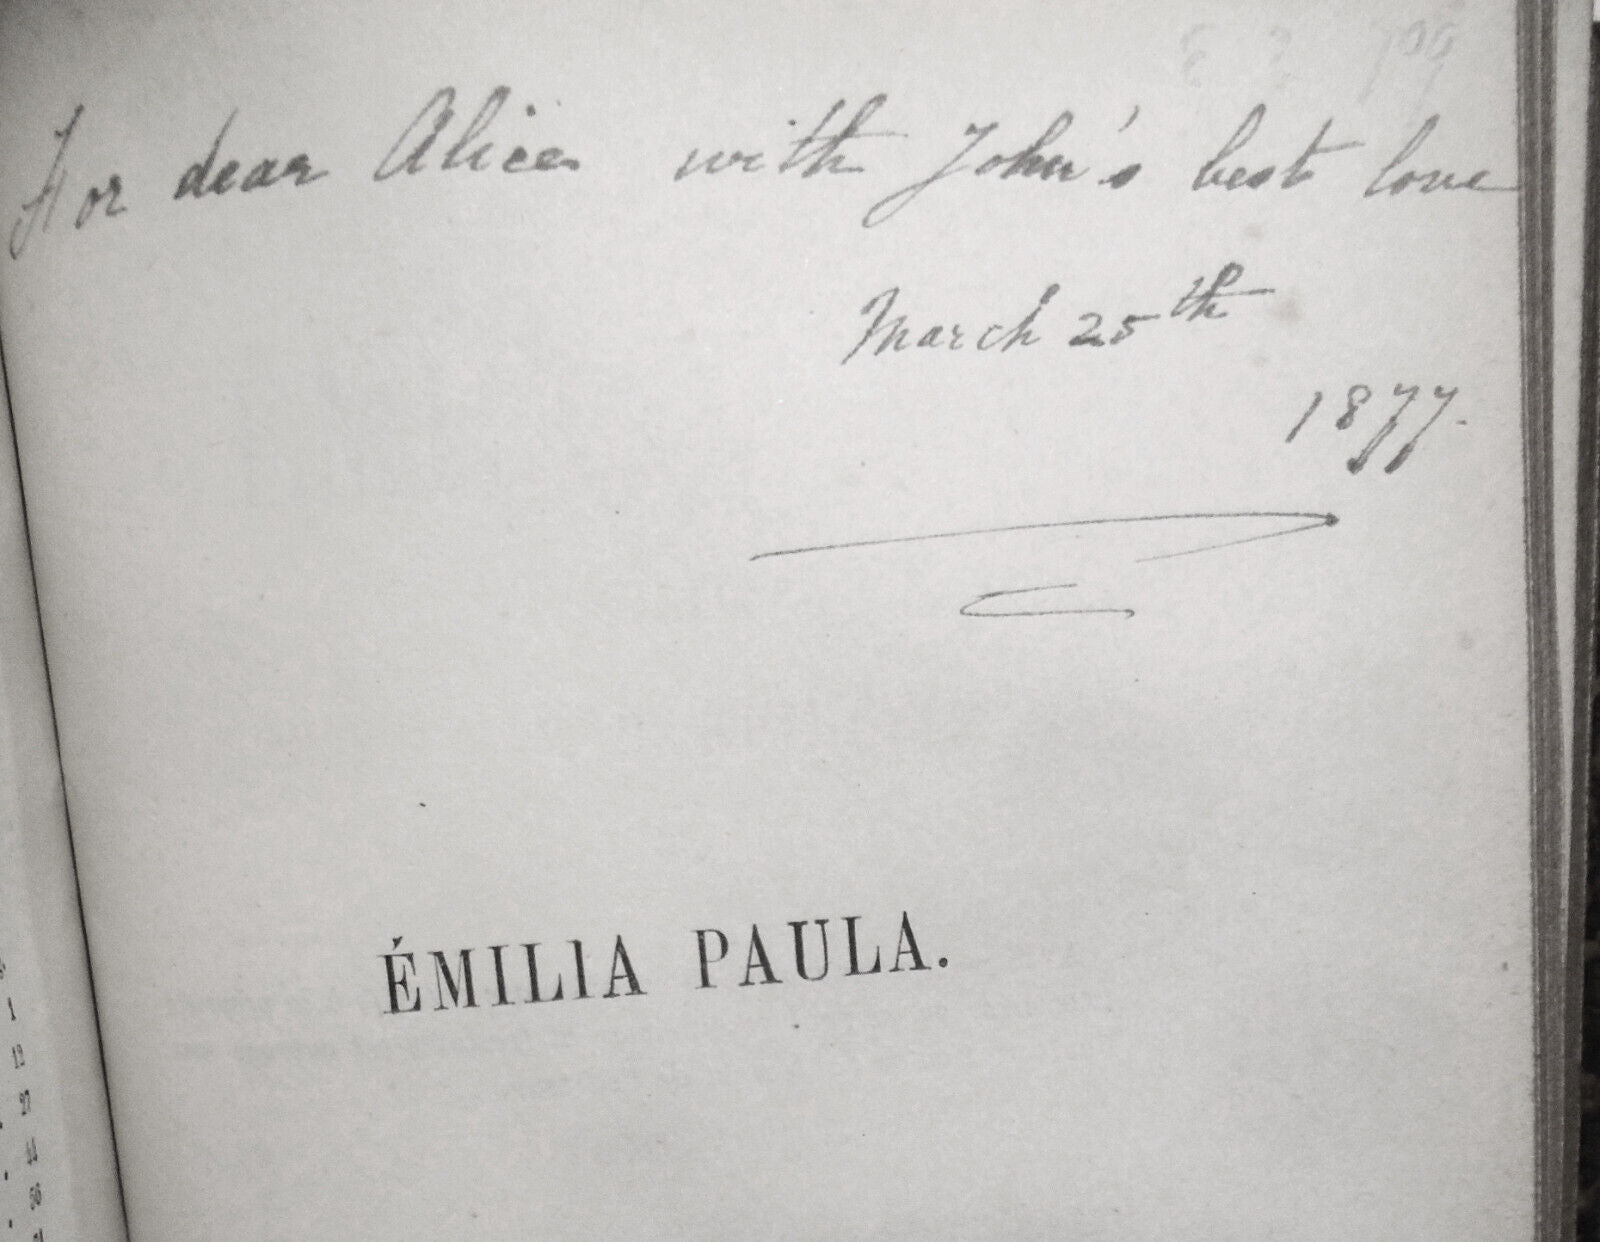 For dear Alice with John's best love
March 25th
1877.
ÉMILIA PAULA.
1
12
27
41
56